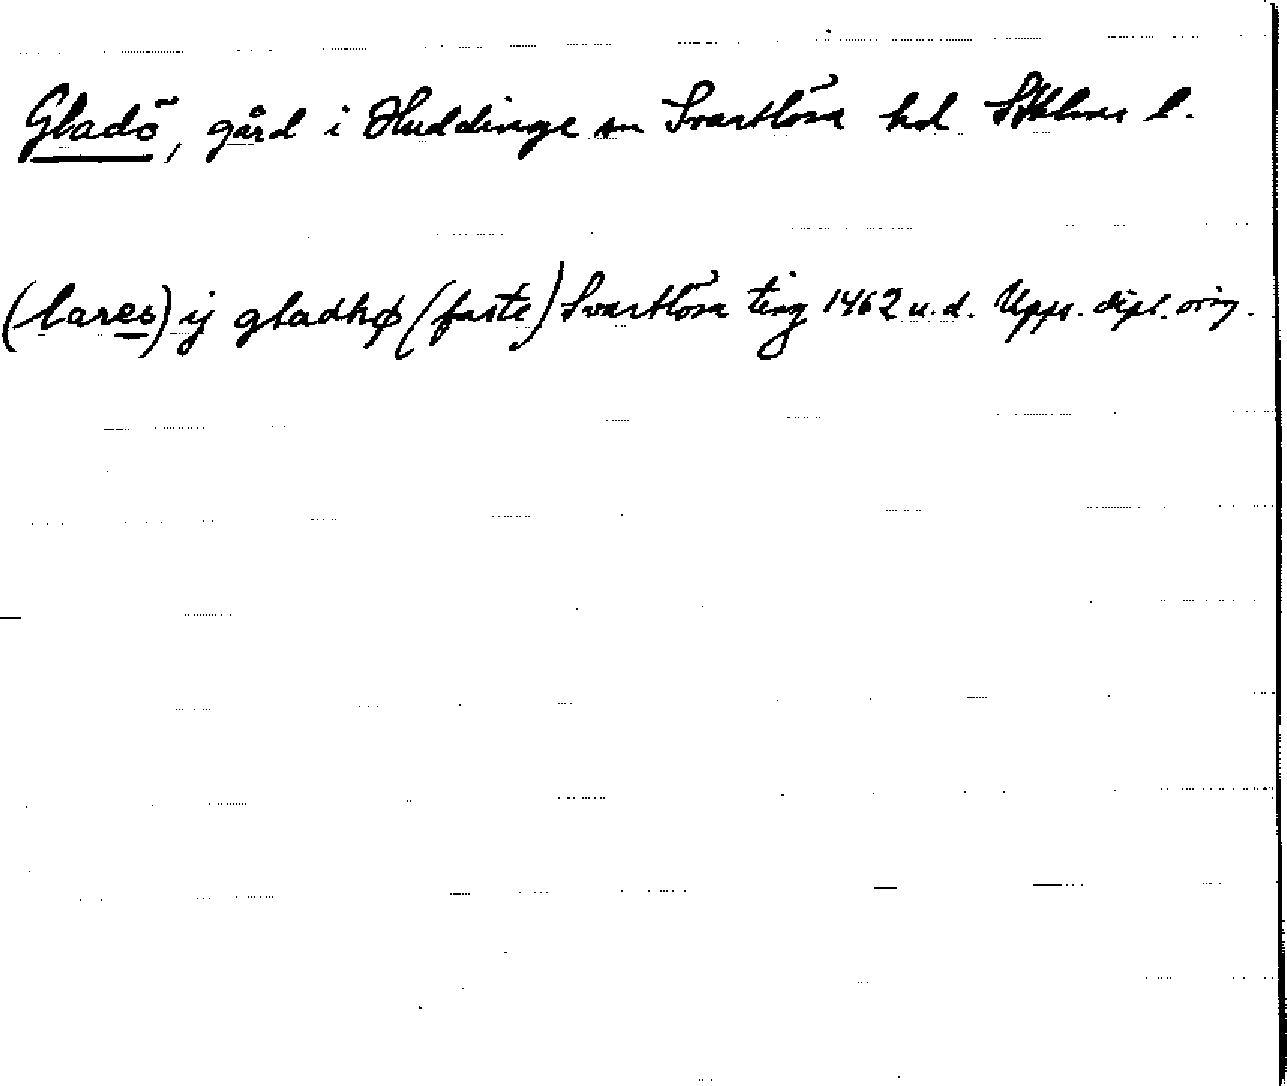 Gladö, gård i Huddinge sn Svartlösa hd Sthlms l.
(lares) ij gladhø (faste) Svartlösa ting 1462 u.d. Upps. dipl. orig.